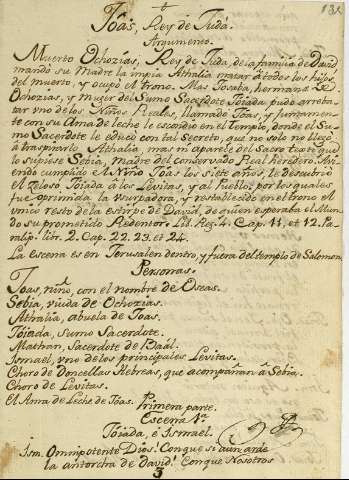 131
Joás, Rey de Judá.
Argumento.
Muerto Ochozías, Rey de Juda, de la familia de David
mandó su Madre la impia Athalia matar á todos los hijos
del muerto, y ocupó el trono. Mas Josaba, hermana de
Ochozias, y muger del Sumo Sacerdote Joiada pudo arreba-
tar vno de los Niños Reales, llamado Joas, y juntamen-
te con su Ama de leche le escondio en el templo, donde el Su-
mo Sacerdote le educó con tal secreto, que no solo no llegó
á traspirarlo Athalia, mas ni aparece del Sacro texto que
lo supiese Sebia, madre del conservado Real heredero. Avi-
endo cumplido el Niño Joas los siete años, le descubrió
el zeloso Joiada á los Levitas, y al Pueblo, por los quales
fue oprimida la vsurpadora, y restablecido en el trono el
vnico resto de la estirpe de David, de quien esperaba el Mun-
do su prometido Redentor. Lib. Reg. 4. Cap. 11. et 12. Pa-
ralip. libr. 2. Cap. 22. 23. et 24.
La escena es en Jerusalen dentro, y fuera del templo de Salomon.
Personas.
Joas, niño, con el nombre de Oseas.
Sebia, viuda de Ochozias.
Athalia, abuela de Joas.
Joiada, Sumo Sacerdote.
Mathan, Sacerdote de Baál.
Ismael, vno de los principales Levitas.
Choro de Doncellas Hebreas, que acompañan á Sebia.
Choro de Levitas.
El Ama de Leche de Joas.
Primera parte.
Escena 1ª
Joiada, e Ismael.
Ism. Omnipotente Dios! Conque si aun arde
la antorcha de David! Conque Nosotros
3